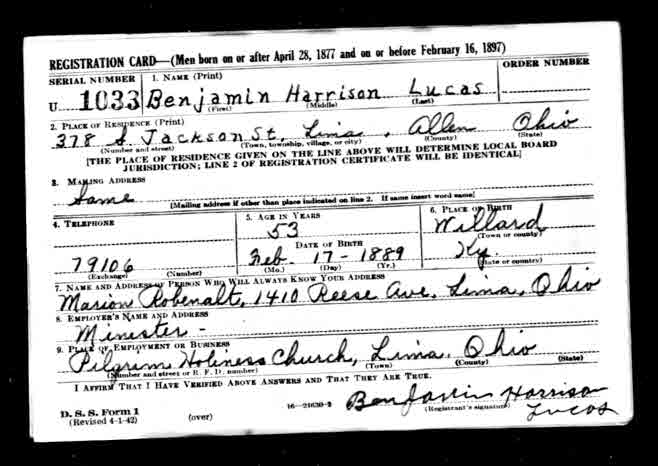 REGISTRATION CARD—(Men born on or after April 28, 1877 and on or before February 16, 1897)
SERIAL NUMBER 1. NAME (Print) ORDER NUMBER
U 1033 Benjamin Harrison Lucas
(First) (Middle) (Last)
2. PLACE OF RESIDENCE (Print)
378 S. Jackson St, Lima, Allen Ohio
(Number and street) (Town, township, village, or city) (County) (State)
[THE PLACE OF RESIDENCE GIVEN ON THE LINE ABOVE WILL DETERMINE LOCAL BOARD
JURISDICTION; LINE 2 OF REGISTRATION CERTIFICATE WILL BE IDENTICAL]
3. MAILING ADDRESS
Same
[Mailing address if other than place indicated on line 2. If same insert word same]
4. TELEPHONE 5. AGE IN YEARS 6. PLACE OF BIRTH
53 Willard
(Town or county)
DATE OF BIRTH
79106 Feb. 17-1889 Ky.
(Exchange) (Number) (Mo.) (Day) (Yr.) (State or country)
7. NAME AND ADDRESS OF PERSON WHO WILL ALWAYS KNOW YOUR ADDRESS
Marion Robenalt, 1410 Reese Ave, Lima, Ohio
8. EMPLOYER'S NAME AND ADDRESS
Minister -
9. PLACE OF EMPLOYMENT OR BUSINESS
Pilgrim Holiness Church, Lima, Ohio
(Number and street or R. F. D. number) (Town) (County) (State)
I AFFIRM THAT I HAVE VERIFIED ABOVE ANSWERS AND THAT THEY ARE TRUE.
Benjamin Harrison
Lucas
D. S. S. Form 1 16—21630-2 (Registrant's signature)
(Revised 4-1-42) (over)